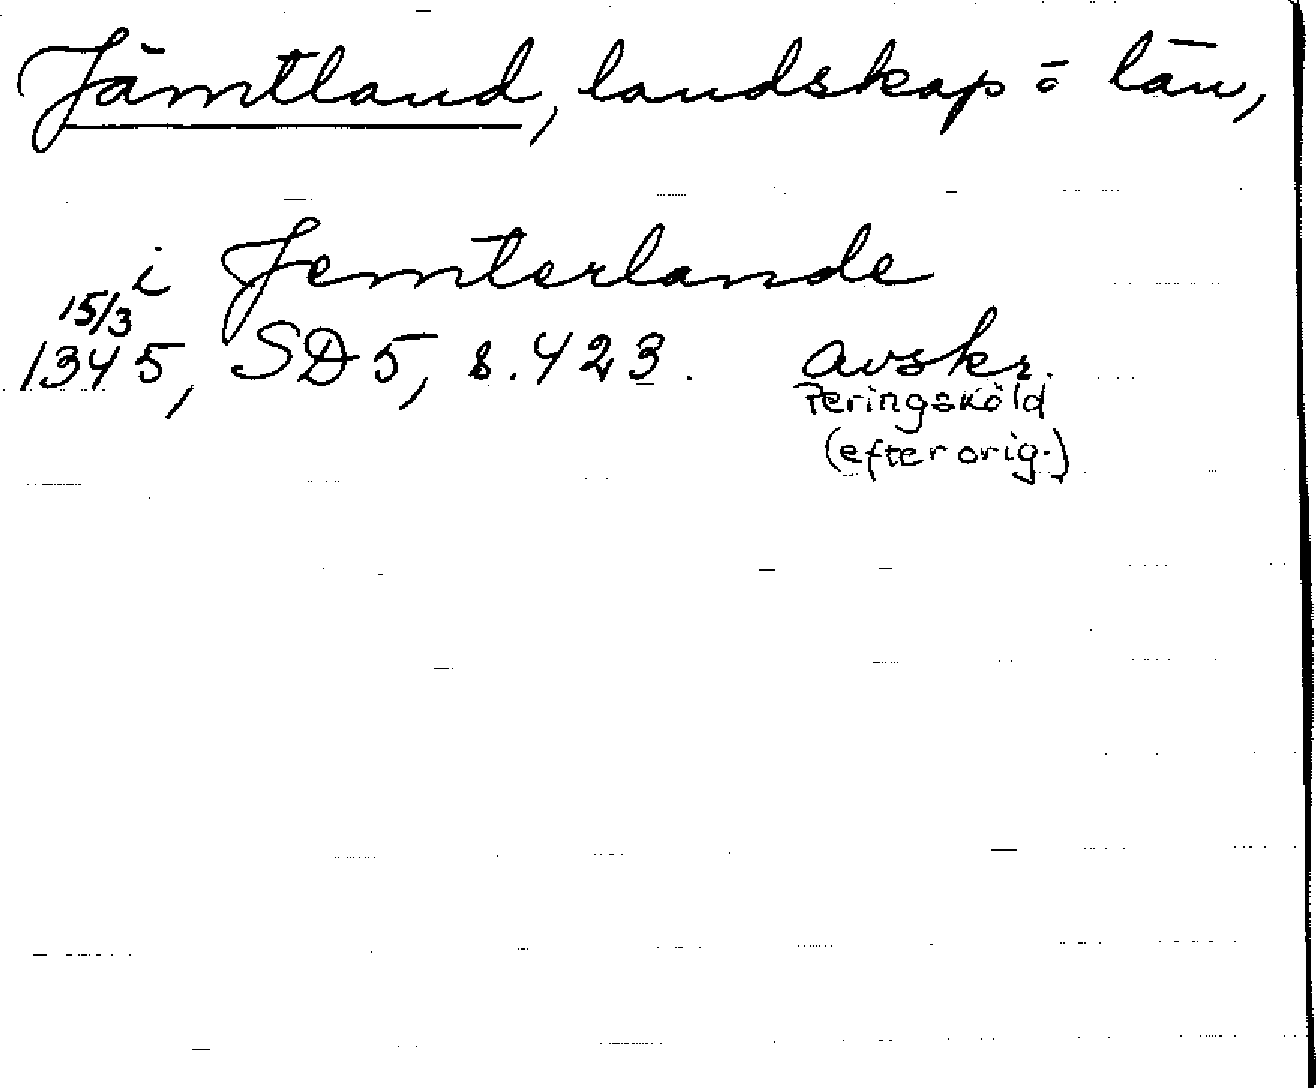 Jämtland, landskap o län,
i Jemterlande
15/3
1345, SD 5, s. 423. avskr.
Peringsköld
(efter orig.)